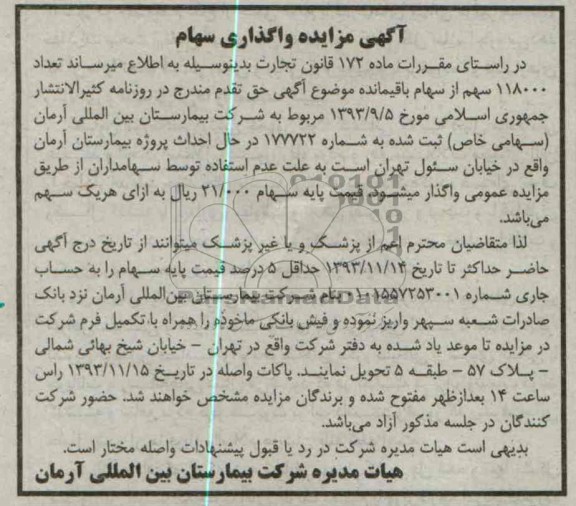 آگهی مزایده واگذاری سهام
در راستای مقررات ماده ۱۷۲ قانون تجارت بدینوسیله به اطلاع میرساند تعداد
۱۱۸۰۰۰ سهم از سهام باقیمانده موضوع آگهی حق تقدم مندرج در روزنامه کثیرالانتشار
جمهوری اسلامی مورخ ۱۳۹۳/۹/۵ مربوط به شرکت بیمارستان بین المللی آرمان
(سهامی خاص) ثبت شده به شماره ۱۷۷۷۲۲ در حال احداث پروژه بیمارستان آرمان
واقع در خیابان سئول تهران است به علت عدم استفاده توسط سهامداران از طریق
مزایده عمومی واگذار میشود. قیمت پایه سهام ۲۱/۰۰۰ ریال به ازای هریک سهم
می‌باشد.
لذا متقاضیان محترم اعم از پزشک و یا غیر پزشک میتوانند از تاریخ درج آگهی
حاضر حداکثر تا تاریخ ۱۳۹۳/۱۱/۱۴ حداقل ۵ درصد قیمت پایه سهام را به حساب
جاری شماره بنام شرکت بیمارستان بین‌المللی آرمان نزد بانک
صادرات شعبه سپهر واریز نموده و فیش بانکی ماخوذه را همراه با تکمیل فرم شرکت
در مزایده تا موعد یاد شده به دفتر شرکت واقع در تهران – خیابان شیخ بهائی شمالی
– پلاک ۵۷ – طبقه ۵ تحویل نمایند. پاکات واصله در تاریخ ۱۳۹۳/۱۱/۱۵ راس
ساعت ۱۴ بعدازظهر مفتوح شده و برندگان مزایده مشخص خواهند شد. حضور شرکت
کنندگان در جلسه مذکور آزاد می‌باشد.
بدیهی است هیات مدیره شرکت در رد یا قبول پیشنهادات واصله مختار است.
هیات مدیره شرکت بیمارستان بین المللی آرمان